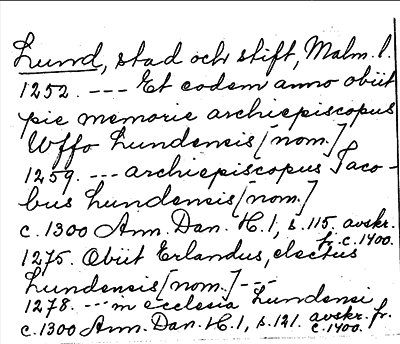 Lund, stad och stift, Malm. l.
1252. --- Et eodem anno obiit
pie memorie archiepiscopus
Uffo Lundensis [nom.]
1259. --- archiepiscopus Jaco-
bus Lundensis [nom.]
c. 1300 Ann. Dan. H. 1, s. 115. avskr.
fr. c. 1400.
1275. Obiit Erlandus, electus
Lundensis [nom.] --
1278. --- in ecclesia Lundensi
c. 1300 Ann. Dan. H. 1, s. 121. avskr. fr.
c. 1400.